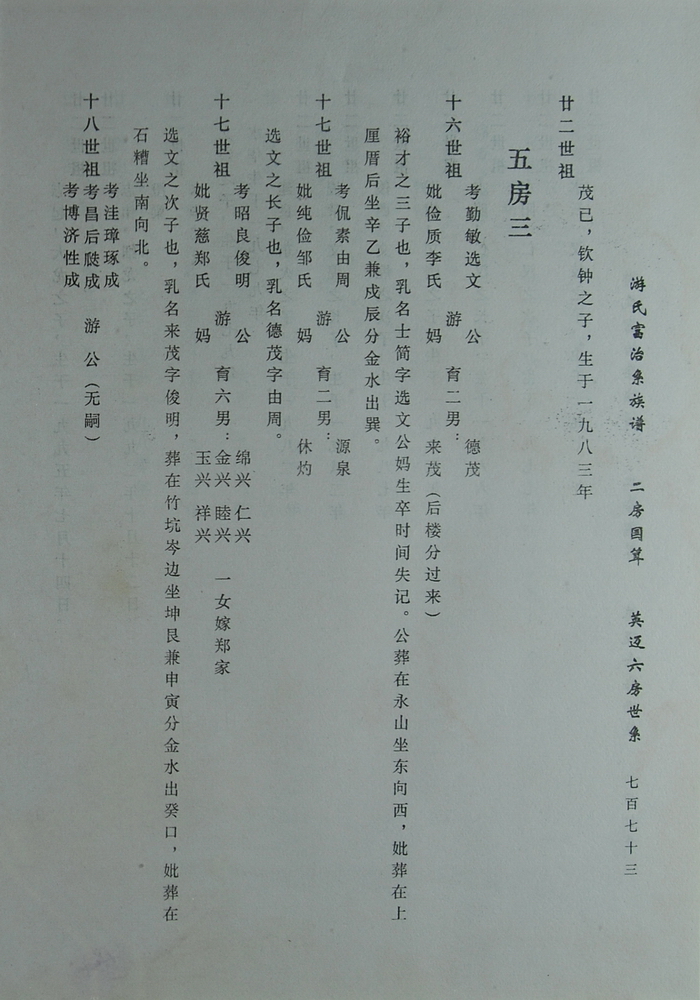 游氏富治系族谱 二房国算 英迈六房世系 七百七十三
廿二世祖
茂已，钦钟之子，生于一九八三年
五房三
十六世祖
考勤敏选文 公
游 育二男：
妣俭质李氏 妈
德茂
来茂（后楼分过来）
裕才之三子也，乳名士简字选文公妈生卒时间失记。公葬在永山坐东向西，妣葬在上
厘厝后坐辛乙兼戍辰分金水出巽。
十七世祖
考侃素由周 公
游 育二男：
妣纯俭邹氏 妈
源泉
休灼
选文之长子也，乳名德茂字由周。
十七世祖
考昭良俊明 公
游 育六男：
妣贤慈郑氏 妈
绵兴 仁兴
金兴 睦兴 一女嫁郑家
玉兴 祥兴
选文之次子也，乳名来茂字俊明，葬在竹坑岑边坐坤艮兼申寅分金水出癸口，妣葬在
石糟坐南向北。
十八世祖
考洼璋琢成
考昌后 成 游 公（无嗣）
考博济性成